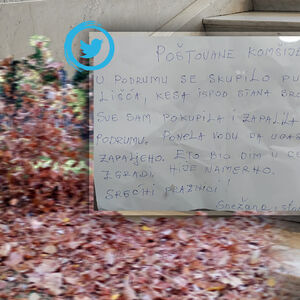 POŠTOVANE KOMŠIJE
U PODRUMU SE SKUPILO PU
LIŠĆA, KESA ISPOD STANA BRO
SVE SAM POKUPILA I ZAPALILA
PODRUMU. PONELA VODU DA UGAS
ZAPALJENO. ETO BIO DIM U C
ZGRADI. NIJE NAMERNO.
SREĆNI PRAZNICI!
Snežana, st